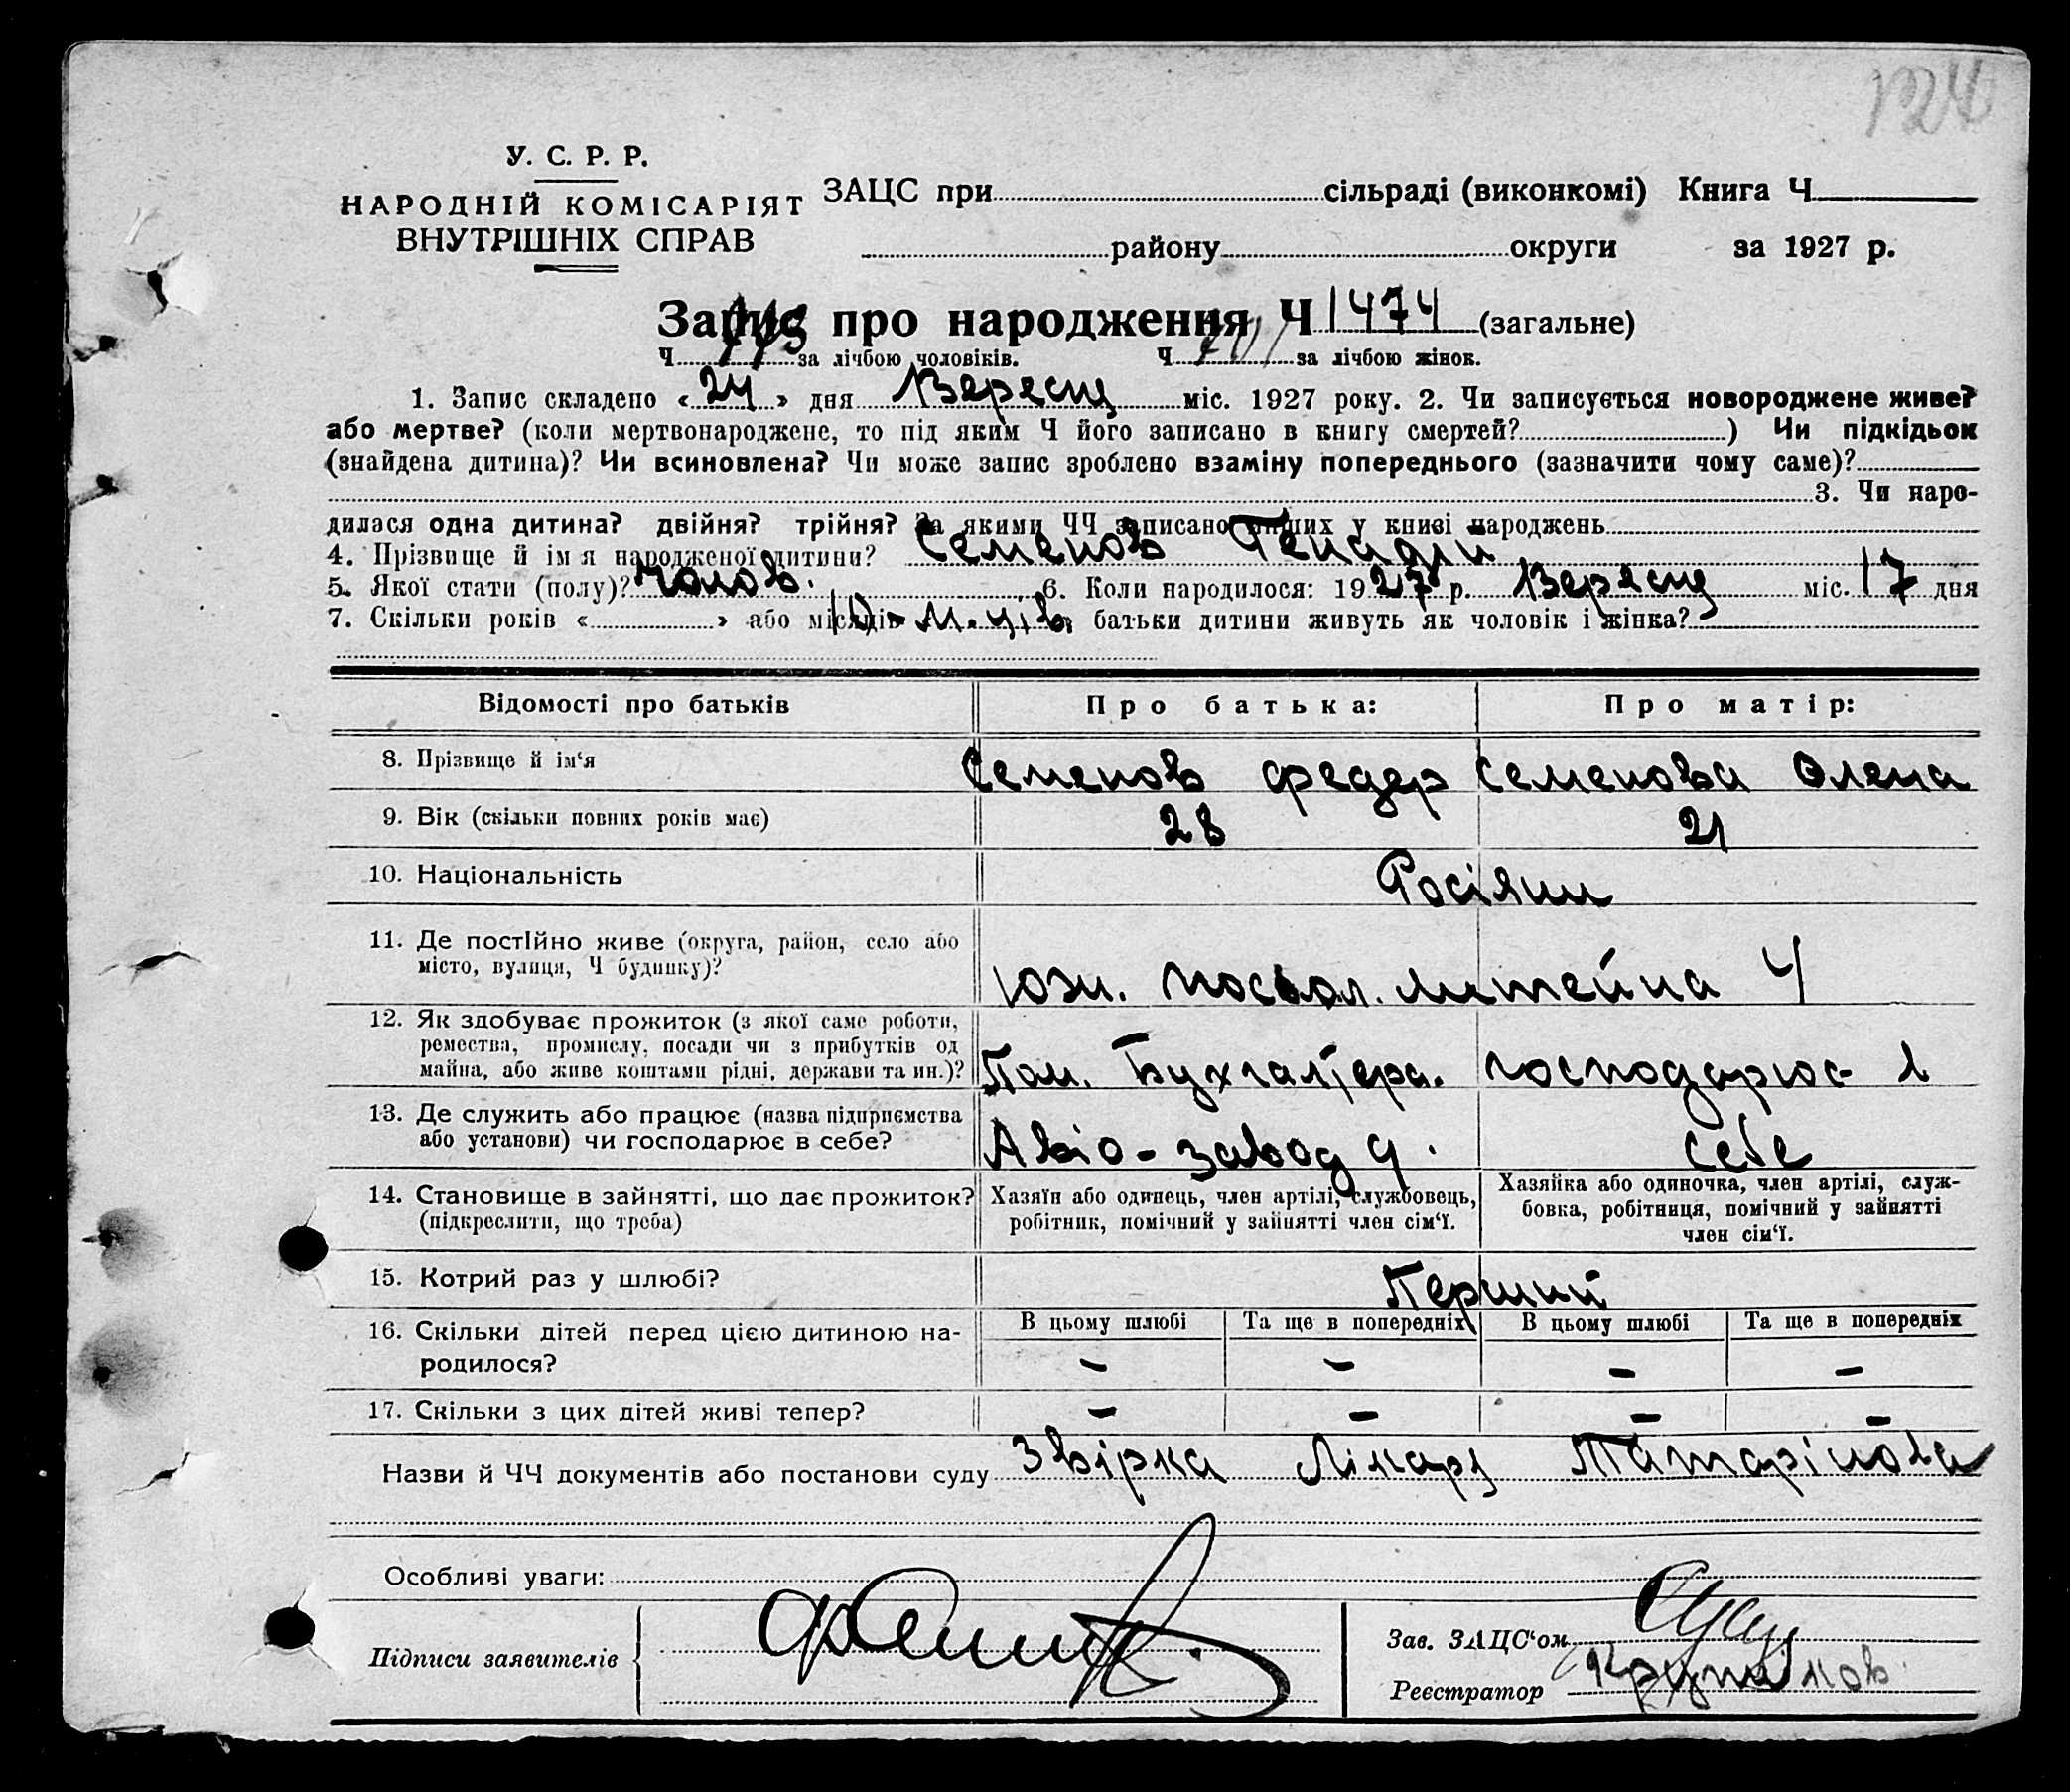 124
У. С. Р. Р.
НАРОДНІЙ КОМІСАРІЯТ
ВНУТРІШНІХ СПРАВ
ЗАЦС при сільраді (виконкомі) Книга Ч
району округи за 1927 р.
Запис про народження Ч 1474 (загальне)
Ч 773 за лічбою чоловіків. Ч 701 за лічбою жінок.
1. Запис складено «24» дня Вересня міс. 1927 року. 2. Чи записується новороджене живе?
або мертве? (коли мертвонароджене, то під яким Ч його записано в книгу смертей? ) Чи підкідьок
(знайдена дитина)? Чи всиновлена? Чи може запис зроблено взаміну попереднього (зазначити чому саме)?
3. Чи наро-
дилася одна дитина? двійня? трійня? За якими ЧЧ записано інших у книзі народжень
4. Прізвище й імя народженої дитини? Семенов Генадій
5. Якої статі (полу)? Чолов. 6. Коли народилося: 1927 р. Вересня міс. 17 дня
7. Скільки років « » або місяців 10 м-ців батьки дитини живуть як чоловік і жінка?
Відомості про батьків Про батька: Про матір:
8. Прізвище й ім'я Семенов Федер Семенова Олена
9. Вік (скільки повних років має) 28 21
10. Національність Росіяни
11. Де постійно живе (округа, район, село або
місто, вулиця, Ч будинку)? Южн. посьол. Литейна 4
12. Як здобуває прожиток (з якої саме роботи,
ремества, промислу, посади чи з прибутків од
майна, або живе коштами рідні, держави та ин.)? Пом. Бухгалтера. господарює в
13. Де служить або працює (назва підприємства
або установи) чи господарює в себе? Авіо-завод 9. себе
14. Становище в зайнятті, що дає прожиток?
(підкреслити, що треба)
Хазяїн або одинець, член артілі, службовець,
робітник, помічний у зайнятті член сім'ї.
Хазяйка або одиночка, член артілі, служ-
бовка, робітниця, помічний у зайнятті
член сім'ї.
15. Котрий раз у шлюбі? Перший
16. Скільки дітей перед цією дитиною на-
родилося?
В цьому шлюбі Та ще в попередніх В цьому шлюбі Та ще в попередніх
– – – –
17. Скільки з цих дітей живі тепер? – – – –
Назви й ЧЧ документів або постанови суду Звірка Лікаря Татарінова
Особливі уваги:
Підписи заявителів
Зав. ЗАЦС'ом
Реєстратор